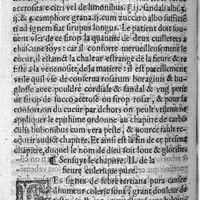 acetositas citri vel de limonibus. ℥.ij. sandali albi.
camphore grana. ij. cum zuccaro albo suffici
ti ad ignem fiat sirupus longus. Le patient doit sou
uent vser de ce sirop la quantite de deux cuillerees a
chascune foys: car il conforte merueilleusement le
cueur, et estainct la chaleur estrange de la fieure & re
siste a la venenosite de la matiere: & est tresexpedient
quil vse de conserua rosarum boraginis & bu
glosse auec pouldre cordiale & sandal & vng petit
de sirop de succo acetosi ou sirop rosat, & pour la
confortation du cueur par dehors on peult vtilement
appliquer le epithime ordonne au chapitre de carb
culis bubonibus cum vera peste, & source fault re
courir audict chapitre. Et ainsi est la fin de ce present
chapitre, duquel le nom de dieu soit loue & glorifie
¶ Sensuyt le chapitre. II. de la
fieure colerique pure.
Les signes de febre tertiana pure causee
dhumeur coleric sont grant douleur de